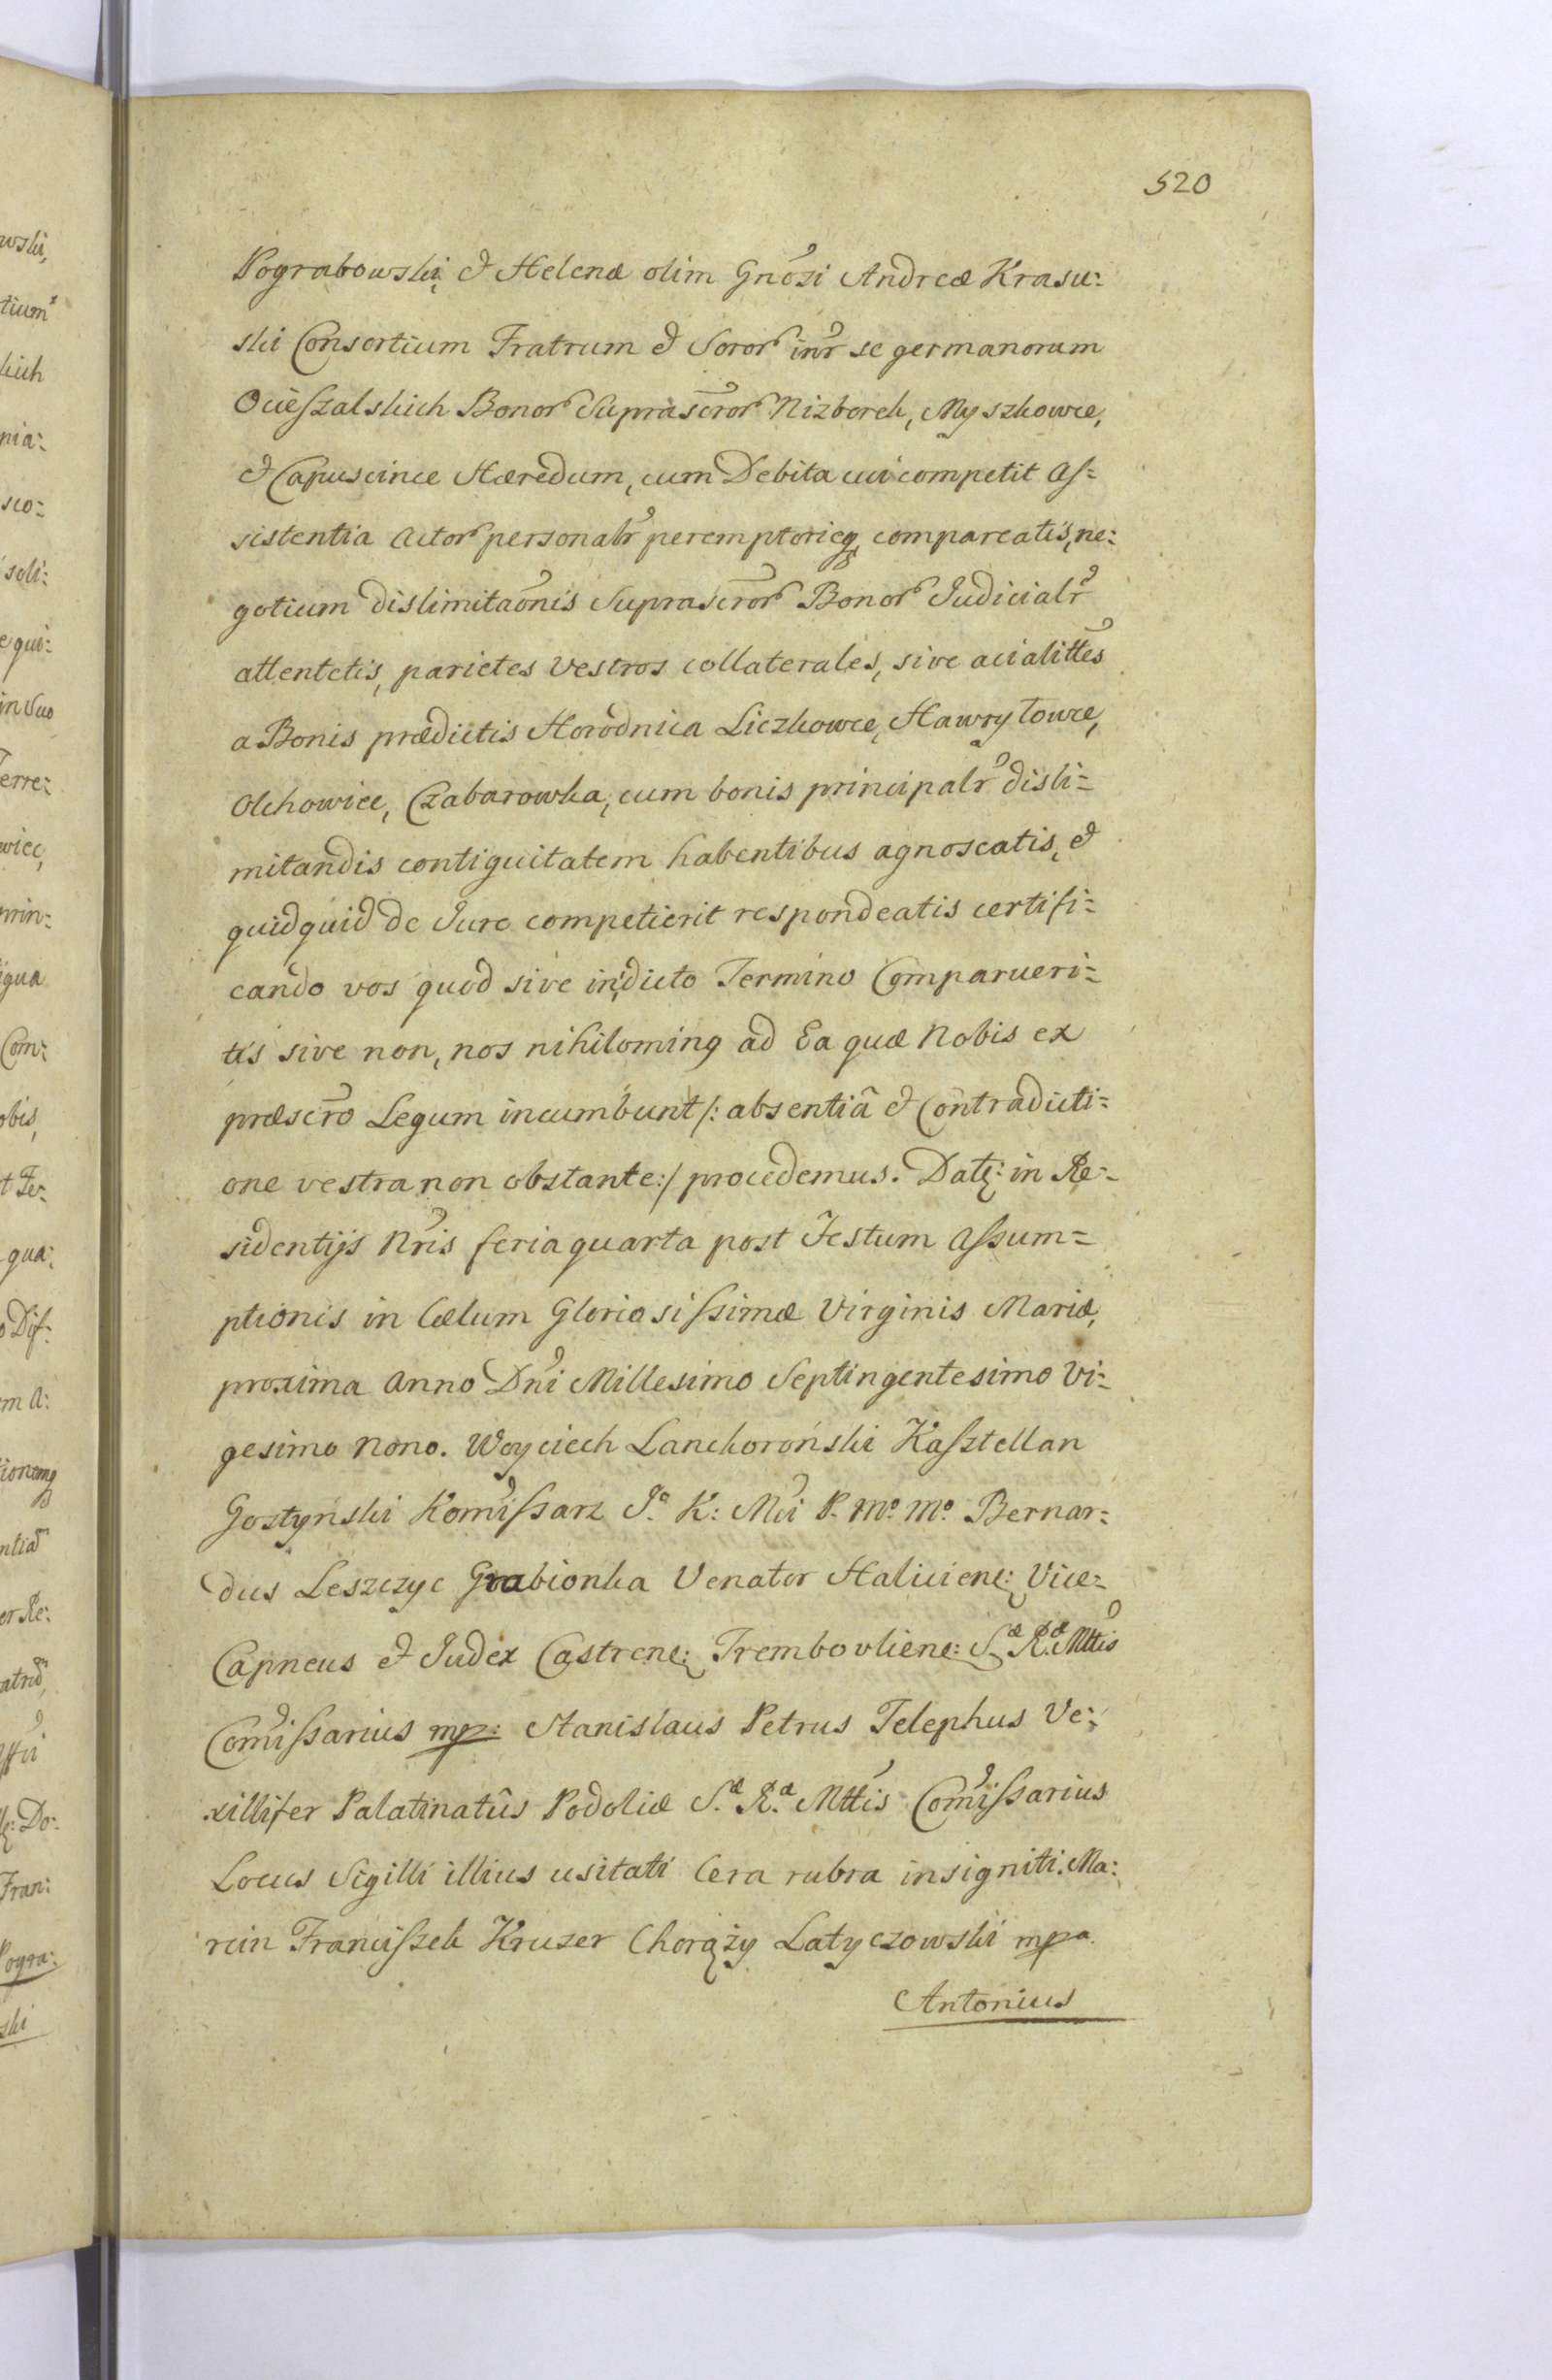 520
Pograbowski, et Helenæ olim Gnosi Andreæ Krasu:
ski Consortium Fratrum et Soror inr se germanorum
Ocieszalskich Bonor Suprascror Nizborek, Myszkowce,
et Capuscince Hæredum, cum Debita cui competit As=
sistentia Actor personalr peremptorieq comparcatis, ne:
gotium dislimitaonis Suprascror Bonor Judicialr
attentetis, parietes vestros collaterales, sive acialittes
a Bonis prædictis Horodnica Liczkowce, Hawryłowce,
Olchowice, Czabarowka, cum bonis principalr disli=
mitandis contiguitatem habentibus agnoscatis, et
quidquid de Jure competierit respondeatis certifi=
cando vos quod sive in dicto Termino Comparueri=
tis sive non, nos nihilominq ad Ea quæ Nobis ex
præscro Legum incumbunt /: absentiâ et Contradicti=
one vestra non obstante :/ procedemus. Datt: in Re=
sidentijs Nris feria quarta post Festum Assum=
ptionis in Cælum Gloriosissimæ Virginis Mariæ,
proxima Anno Dni Millesimo Septingentesimo Vi=
gesimo Nono. Woyciech Lanckoroński Kasztellan
Gostynski Komissarz J.o K: Mci P. Mo. Mo. Bernar:
dus Leszczyc Grabionka Venator Haliciene: Vice=
Capneus et Judex Castrene: Trembovliene: S.æ R.æ Mttis
Comissarius mp: Stanislaus Petrus Telephus Ve:
xillifer Palatinatûs Podoliæ S.æ R.æ Mttis Comissarius
Locus Sigilli illius usitati Cera rubra insigniti. Ma:
rcin Franciszek Kruzer Chorąży Latyczowski mpa.
Antonius